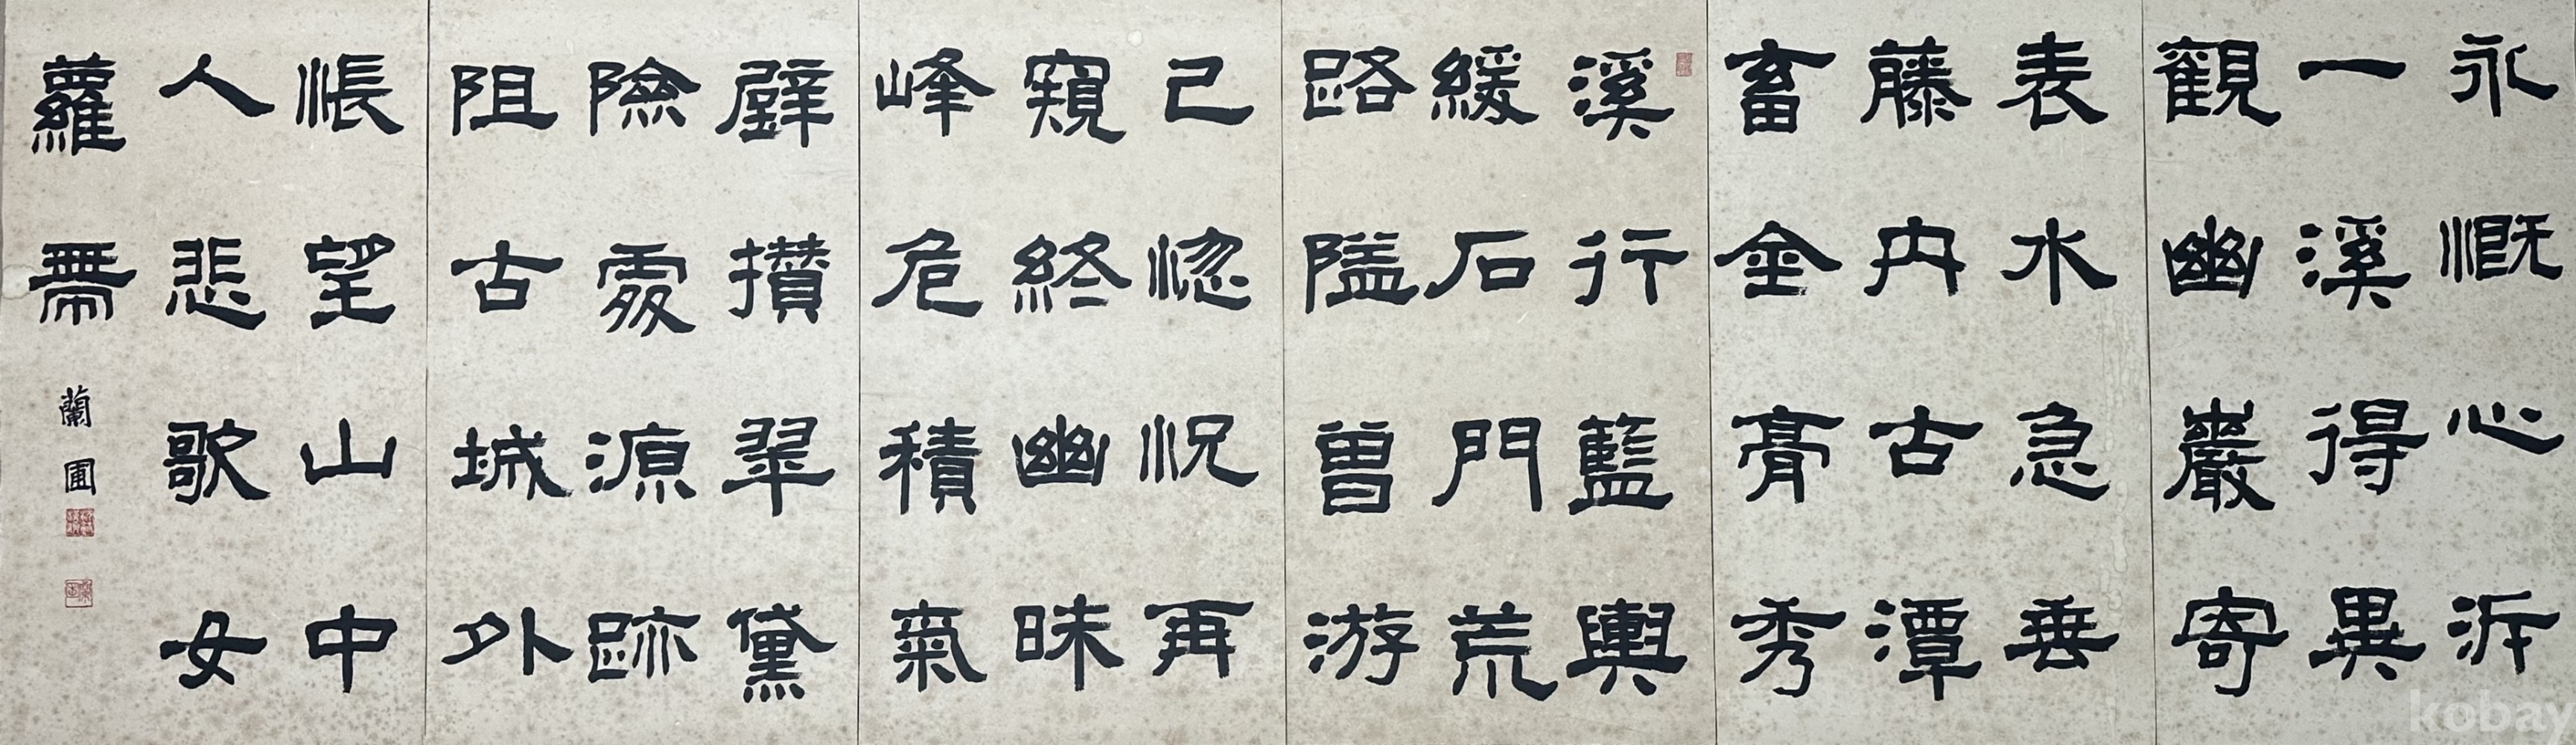 永慨心泝
一溪得異
觀幽巖寄
表水急垂
藤冉古潭
畜金膏秀
溪行藍輿
緩石門荒
路隘曾游
已惚怳再
窺終幽昧
峰危積氣
壁攢翠黛
險霞源跡
阻古城外
悵望山中
人悲歌女
蘿帶
蘭圃
kobay